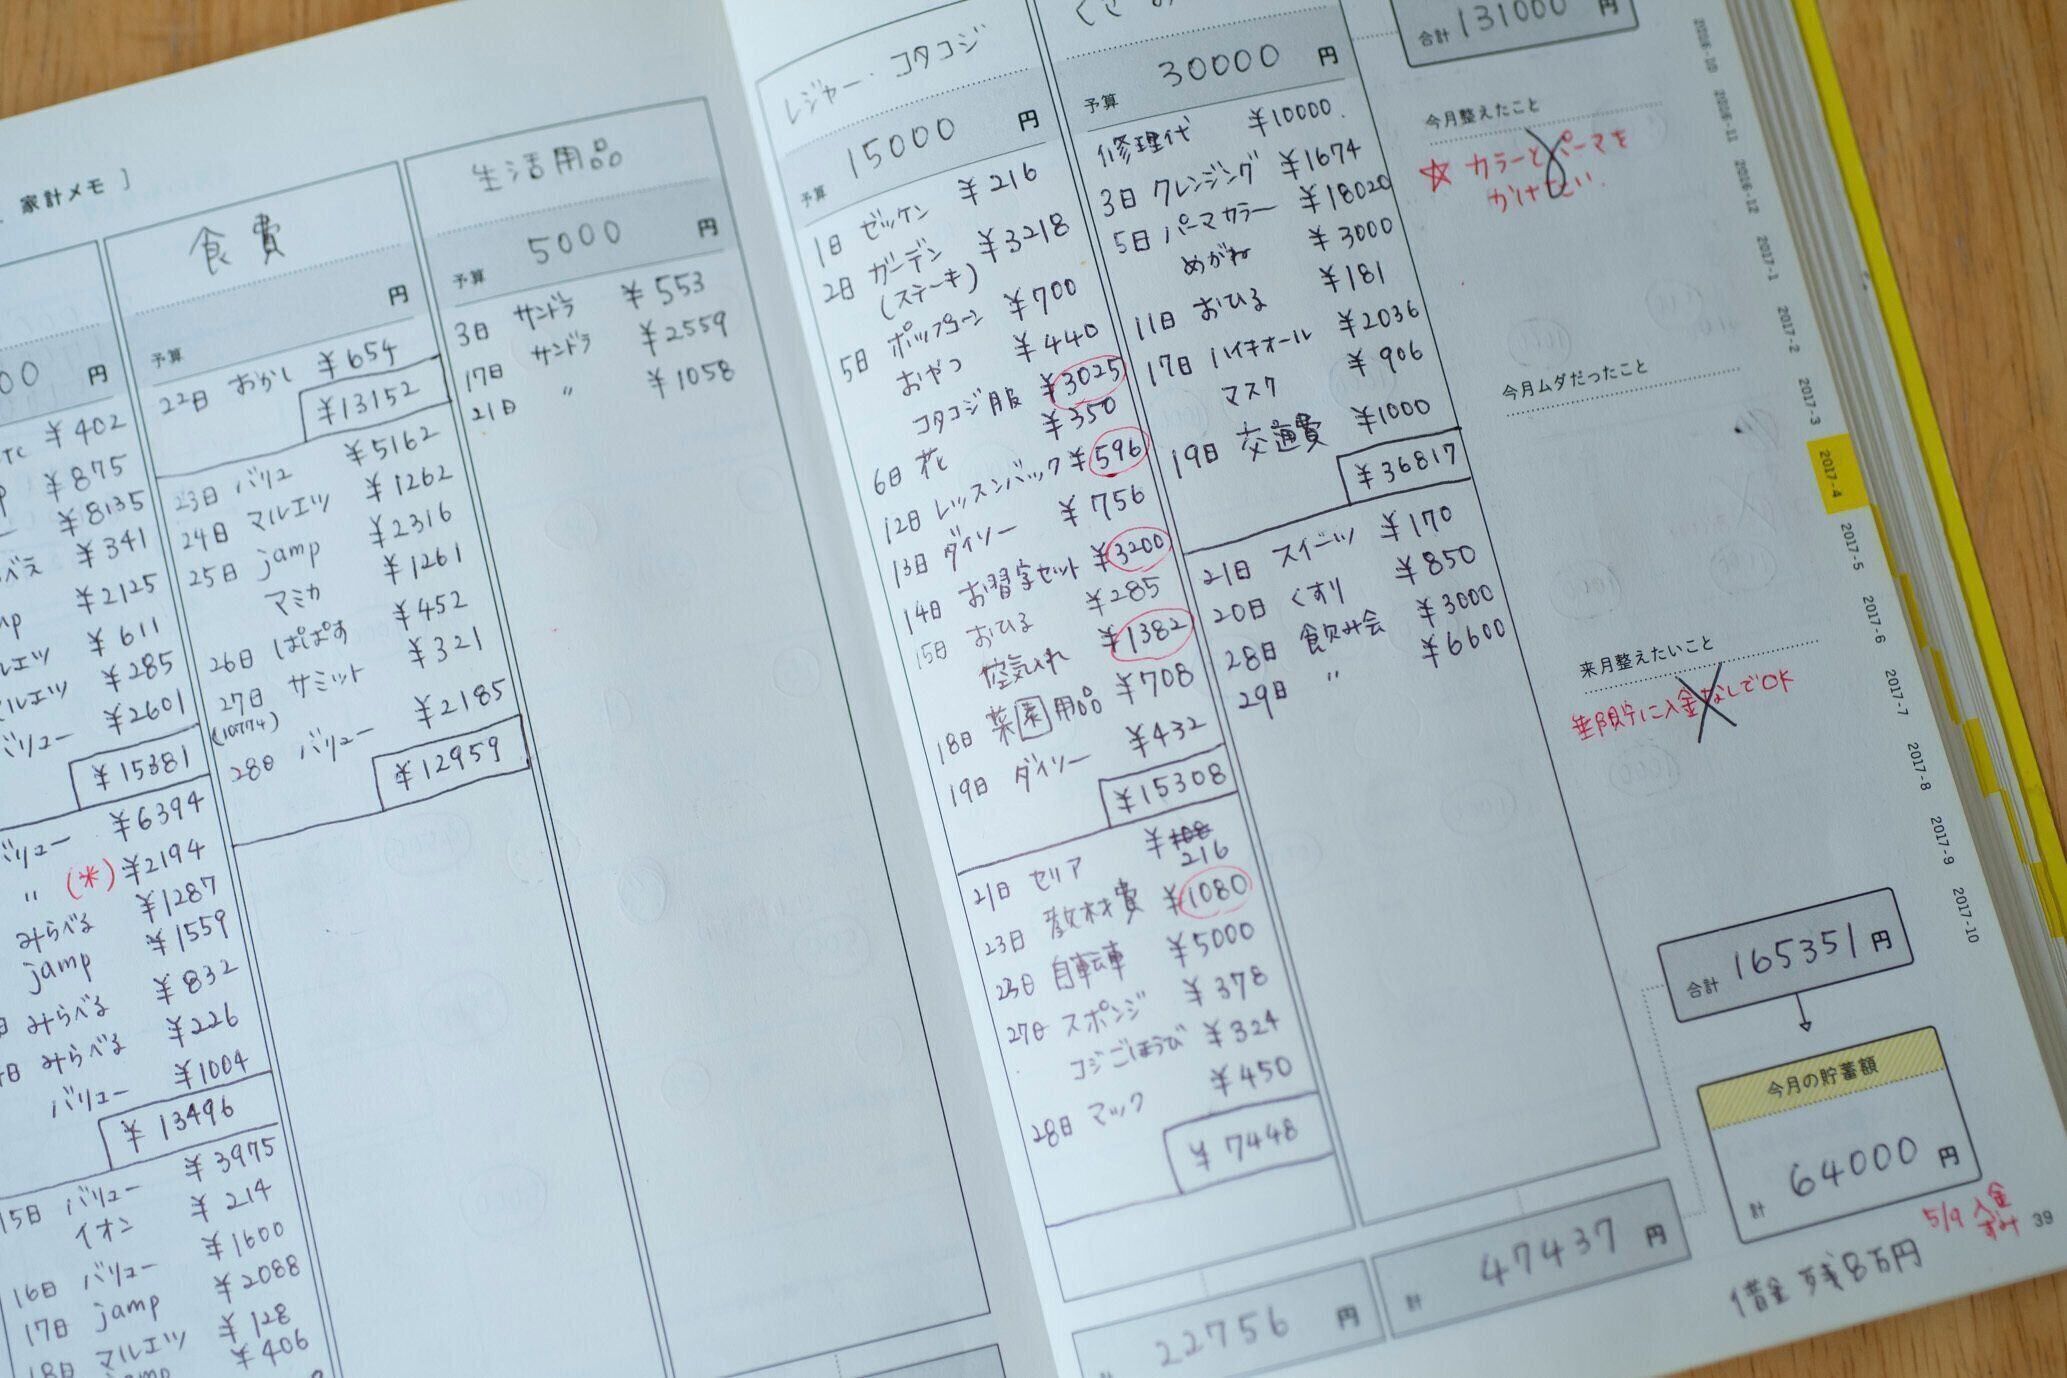 家計メモ ]
00 円
TC ¥402
p ¥875
¥8135
べえ ¥341
mp ¥2125
ルエツ ¥611
マルエツ ¥285
バリュー ¥2601
¥15381
バリュー ¥6394
〃 (米) ¥2194
みらべる ¥1287
jamp ¥1559
日 みらべる ¥832
日 みらべる ¥226
バリュー ¥1004
¥13496
15日 バリュー ¥3975
イオン ¥214
16日 バリュー ¥1600
17日 jamp ¥2088
18日 マルエツ ¥128
jamp ¥406
食費
予算 円
22日 おかし ¥654
¥13152
23日 バリュ ¥5162
24日 マルエツ ¥1262
25日 jamp ¥2316
マミカ ¥1261
26日 ぱぱす ¥452
27日 サミット ¥321
(10774)
28日 バリュー ¥2185
¥12959
生活用品
予算 5000 円
3日 サンドラ ¥553
17日 サンドラ ¥2559
21日 〃 ¥1058
レジャー・コタコジ
予算 15000 円
1日 ゼッケン ¥216
2日 ガーデン ¥3218
(ステーキ)
ポップコーン ¥700
5日 おやつ ¥440
コタコジ服 ¥3025
6日 花 ¥350
12日 レッスンバック ¥596
13日 ダイソー ¥756
14日 お習字セット ¥3200
15日 おひる ¥285
空気入れ ¥1382
18日 菜園用品 ¥708
19日 ダイソー ¥432
¥15308
21日 セリア ¥108
216
23日 教材費 ¥1080
23日 自転車 ¥5000
27日 スポンジ ¥378
コジごほうび ¥324
28日 マック ¥450
¥7448
22756 円
予算 30000 円
修理代 ¥10000
3日 クレンジング ¥1674
5日 パーマカラー ¥18020
めがね ¥3000
11日 おひる ¥181
17日 ハイキオール ¥2036
マスク ¥906
19日 交通費 ¥1000
¥36817
21日 スイーツ ¥170
20日 くすり ¥850
28日 飲み会 ¥3000
29日 〃 ¥6600
計 47437 円
合計 131000 円
今月整えたこと
☆ カラーとパーマを
かけたい.
今月ムダだったこと
来月整えたいこと
入金なしでOK
合計 165351 円
今月の貯蓄額
計 64000 円
5/9 入金
ずみ
借金 残8万円
39
2016-10
2016-11
2016-12
2017-1
2017-2
2017-3
2017-4
2017-5
2017-6
2017-7
2017-8
2017-9
2017-10